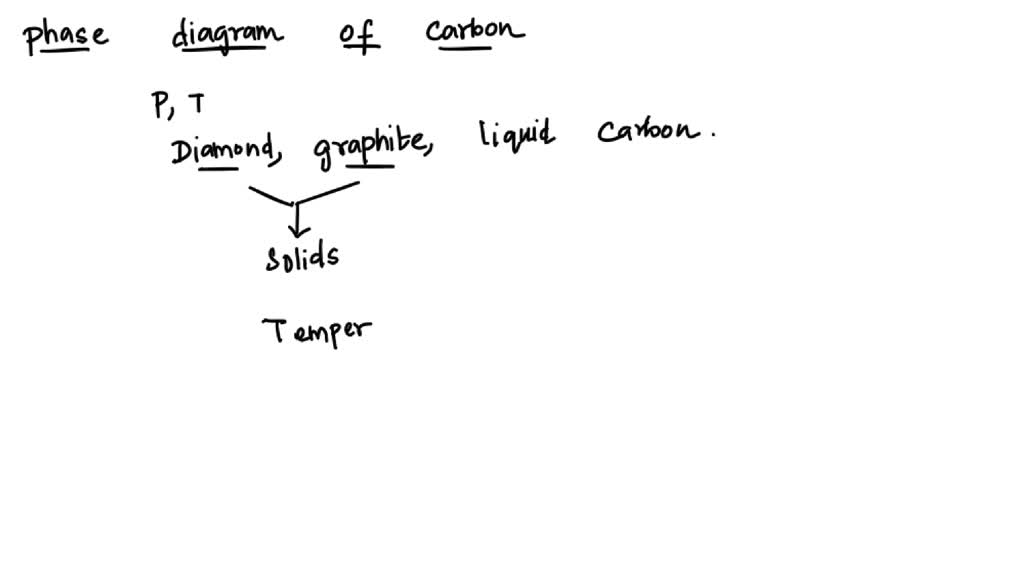 phase diagram of carbon
P, T
Diamond, graphite, liquid carbon.
Solids
Temper